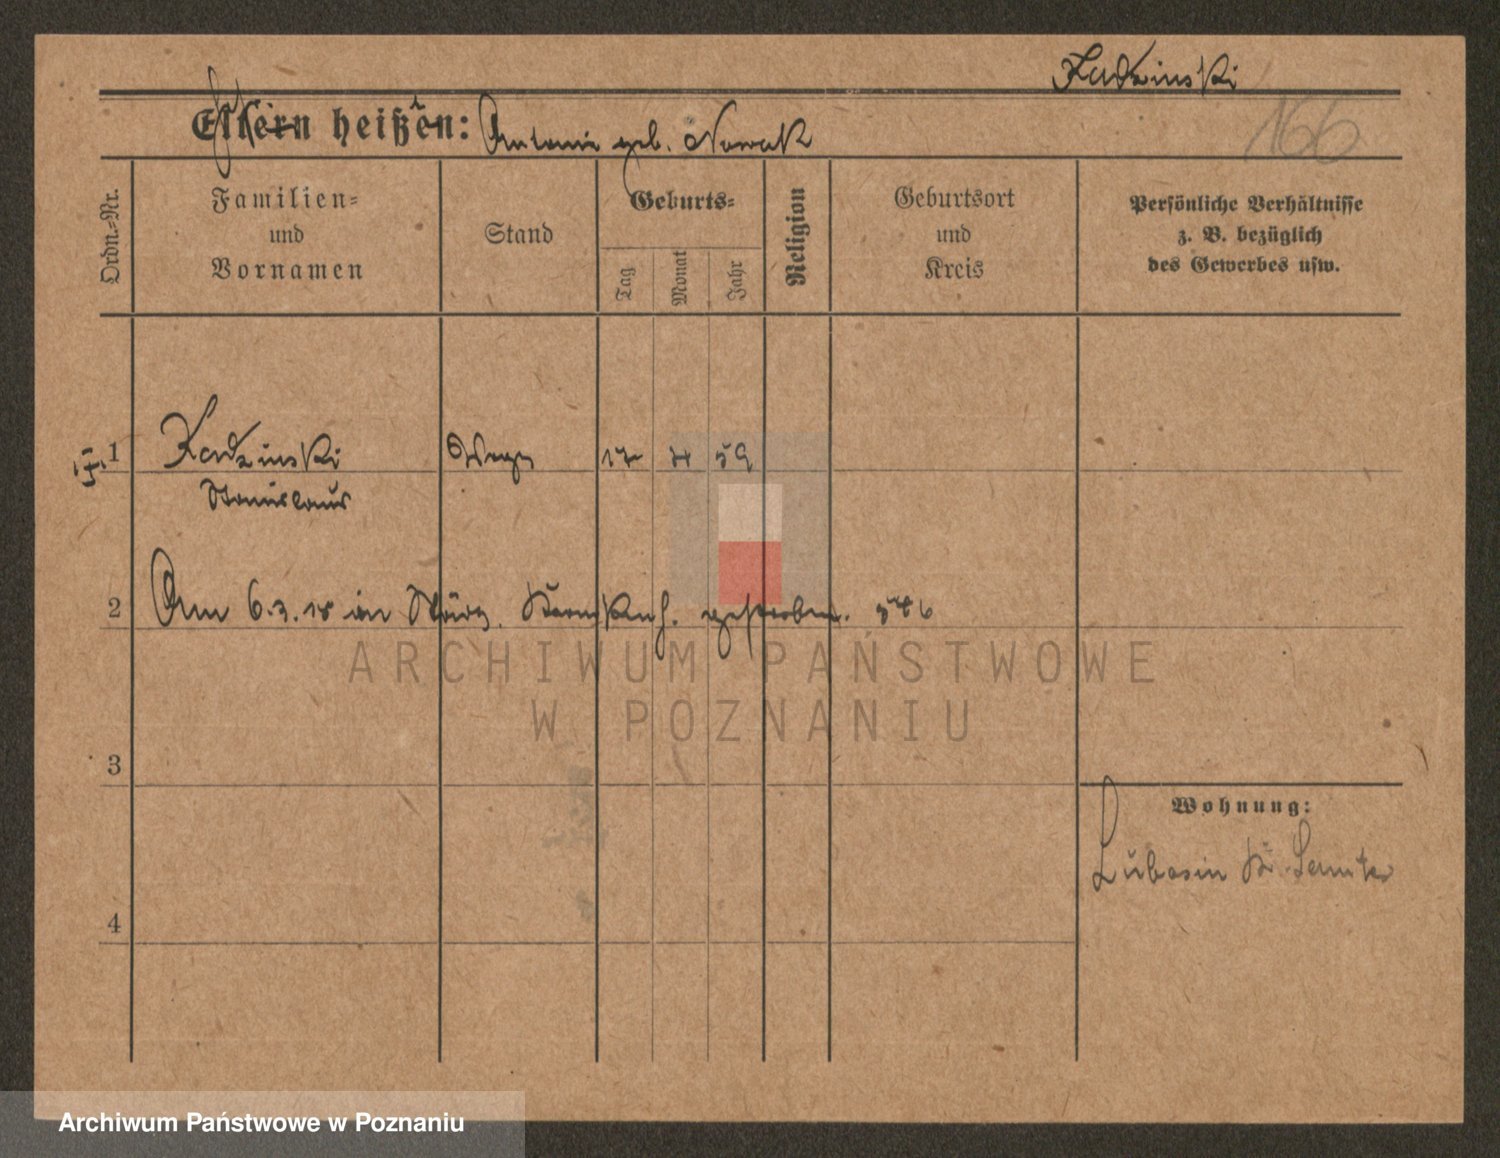 Kadzinski
166
Eltern heißen: Antonie geb. Nowak
Ordn.-Nr.
Familien-
und
Vornamen
Stand
Geburts-
Tag
Monat
Jahr
Religion
Geburtsort
und
Kreis
Persönliche Verhältnisse
z. B. bezüglich
des Gewerbes usw.
1 Kadzinski 17 4 59
Stanislaus
2 Am 6.3.18 im Krankenh. gestorben.
ARCHIWUM PAŃSTWOWE
W POZNANIU
3
Wohnung:
Lubosin Kr. Samter
4
Archiwum Państwowe w Poznaniu